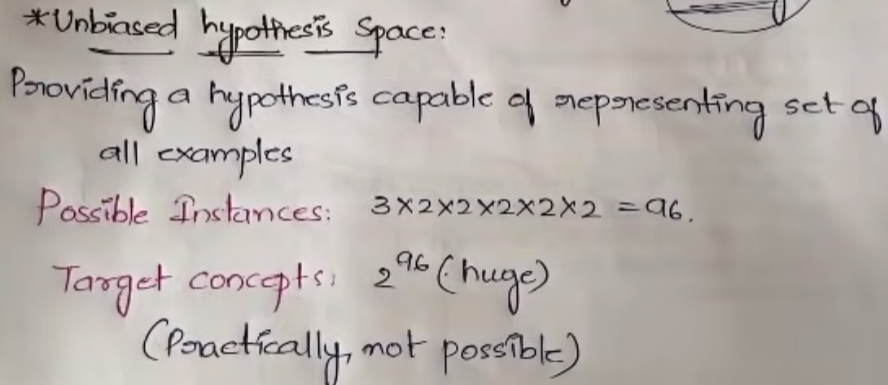 *Unbiased hypothesis Space:
Providing a hypothesis capable of representing set of
all examples
Possible Instances: 3×2×2×2×2×2 = 96.
Target concepts: 2^96 (huge)
(Practically, not possible)